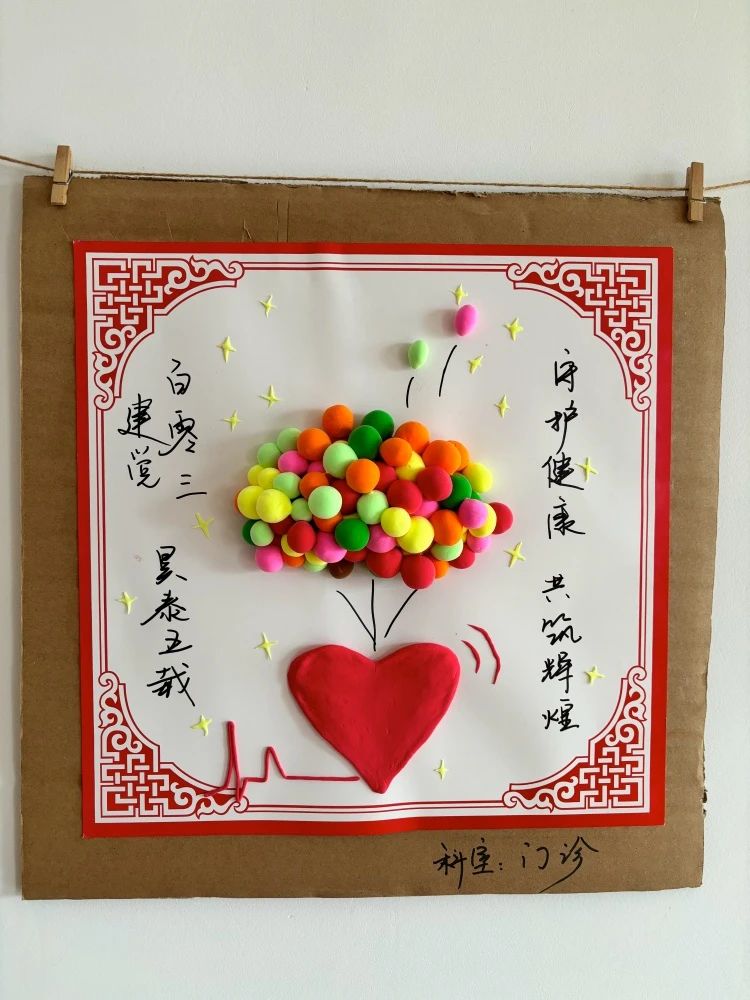 建党
百零三
昊泰五载
守护健康
共筑辉煌
科室：门诊